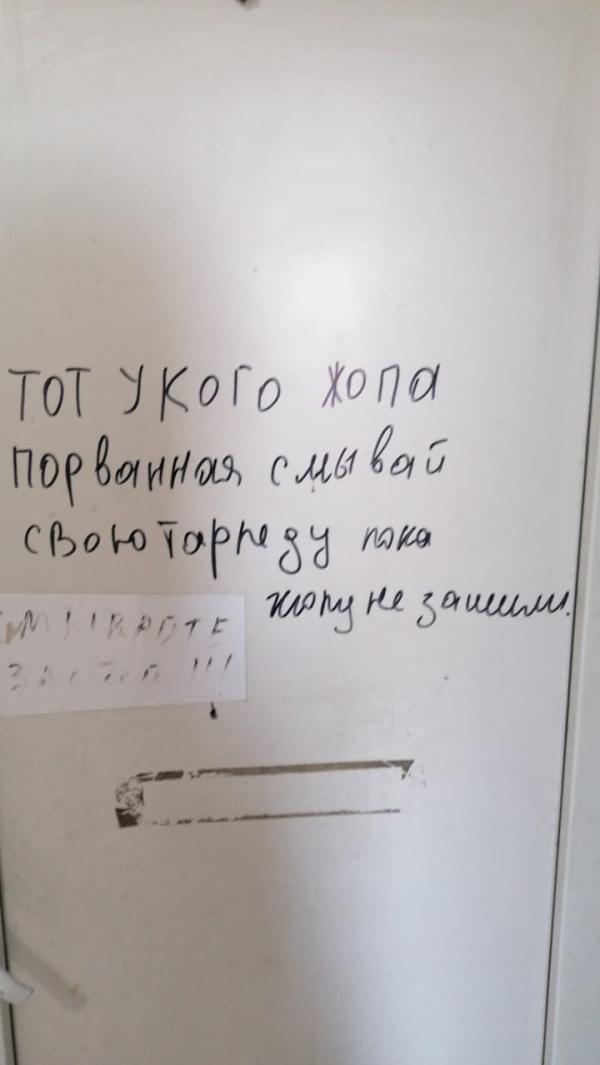 ТОТ У КОГО ЖОПА
ПОРВАННАЯ СМЫВАЙ
СВОЮ ТАРПЕДУ ПОКА
ЖОПУ НЕ ЗАШИЛИ.
СМЫВАЙТЕ
ЗА СОБОЙ !!!